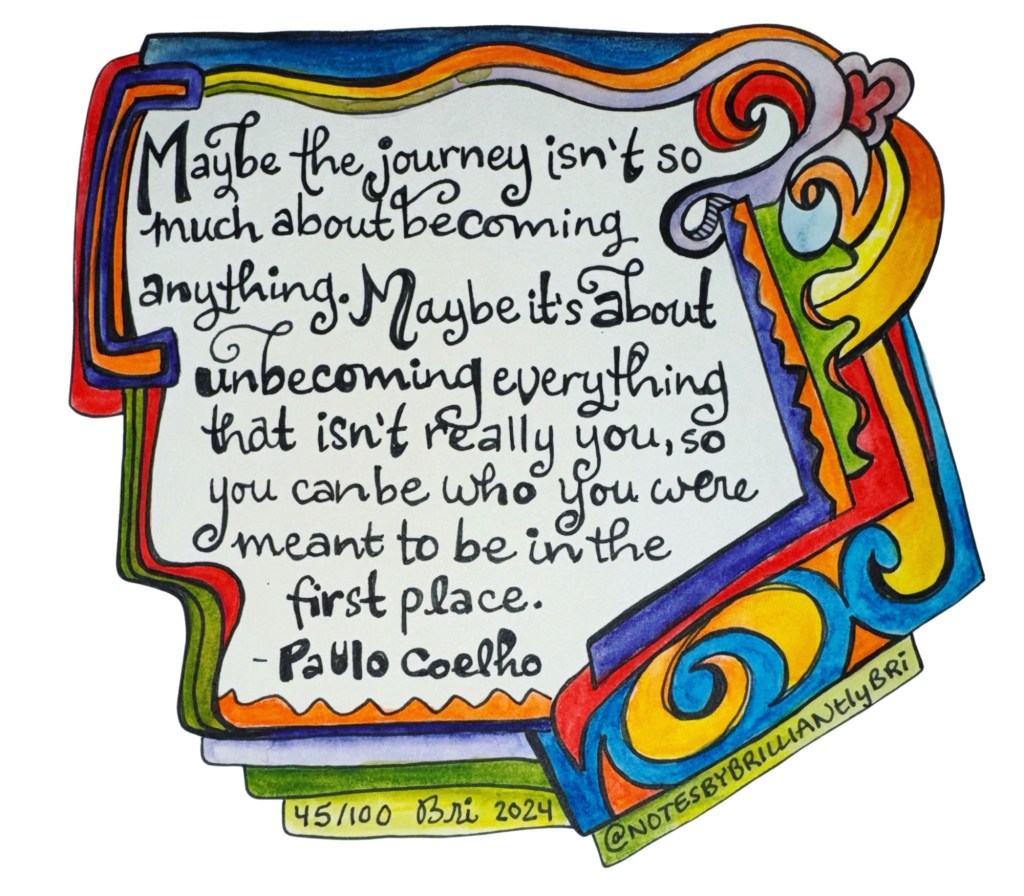 Maybe the journey isn't so
much about becoming
anything. Maybe it's about
unbecoming everything
that isn't really you, so
you can be who you were
meant to be in the
first place.
- Paulo Coelho
45/100 Bri 2024
@NOTESBYBRILLIANtlyBRi